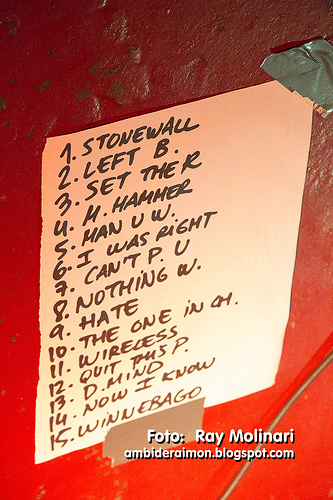 1. STONEWALL
2. LEFT B.
3. SET THE R
4. M. HAMMER
5. MAN U W.
6. I WAS RIGHT
7. CAN'T P. U
8. NOTHING W.
9. HATE
10. THE ONE IN CH.
11. WIRELESS
12. QUIT THIS P.
13. D. MIND
14. NOW I KNOW
15. WINNEBAGO
Foto: Ray Molinari
ambideraimon.blogspot.com